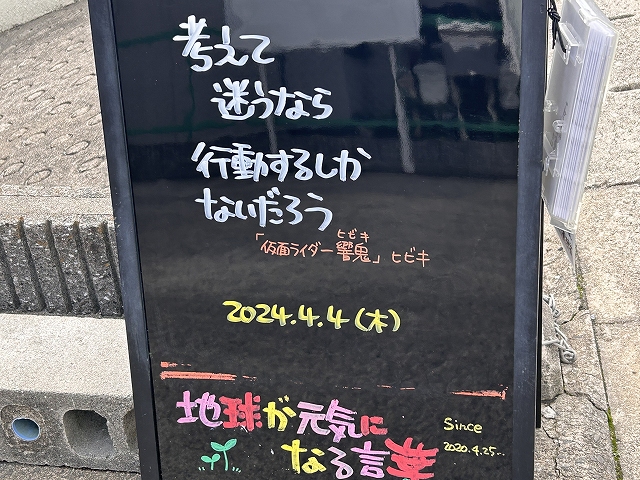 考えて
迷うなら
行動するしか
ないだろう
ヒビキ
「仮面ライダー響鬼」ヒビキ
2024.4.4(木)
地球が元気に
なる言葉
Since
2020.4.25..